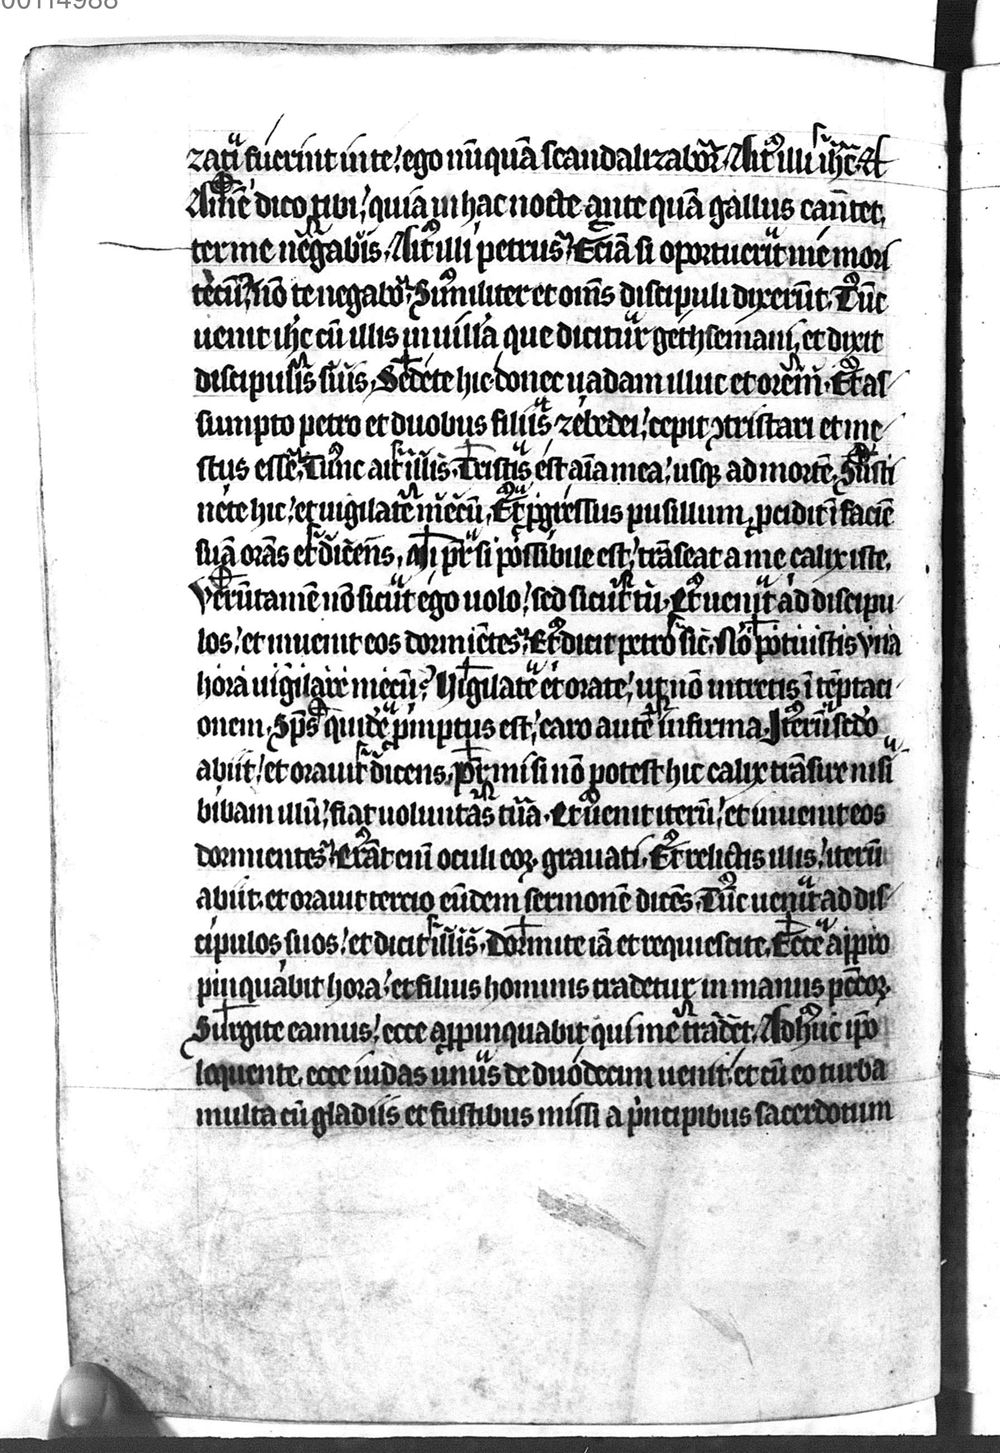 00114988
zati fuerint in te / ego nūquā scandalizabor. Ait illi ih̄c.
Amē dico tibi / quia in hac nocte ante quā gallus cantet,
ter me negabis. Ait illi petrus. Eciā si oportuerit me mori
tecū / nō te negabo. Similiter et om̄s discipuli dixerūt. Tūc
uenit ih̄c cū illis in uillā que dicitur gethsemani, et dixit
discipulis suis, Sedete hic donec uadam illuc et orem. Et as
sumpto petro et duobus filiis zebedei / cepit ꝯtristari et me
stus esse. Tunc ait illis. Tristis est aīa mea / usqꝫ ad mortē. Susti
nete hic / et uigilate mecū, Et ꝓgressus pusillum, ꝓcidit ī faciē
suā orās et dicens, Mi pr̄ si possibile est / trāseat a me calix iste.
Verūtamē nō sicut ego uolo / sed sicut tu. Et uenit ad discipu
los / et inuenit eos dormiētes. Et dicit petro sic. Nō potuistis vna
hora uigilare mecū? Uigilate et orate / ut nō intretis ī tēptaci
onem, Sp̄s quidē ꝓmptus est / caro autē infirma. Iterū scdo
abiit / et orauit dicens. Pr̄ mi si nō potest hic calix trāsire nisi
bibam illū / fiat uoluntas tua. Et uenit iterū / et inuenit eos
dormientes. Erāt enī oculi eoꝝ grauati. Et relictis illis / iterū
abiit. et orauit tercio eūdem sermonē dicēs. Tūc uenit ad dis
cipulos suos / et dicit illis. Dormite iā et requiescite, Ecce appro
pinquabit hora / et filius hominis tradetur in manus pc̄coꝝ.
Surgite eamus / ecce aꝓpinquabit qui me tradet. Adhuc ip̄o
loquente, ecce iudas unus de duodecim uenit / et cū eo turba
multa cū gladiis et fustibus missi a pͥncipibus sacerdotum